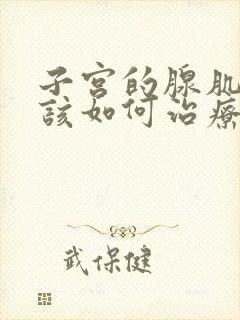 子宫的腺肌
該如何治療
武保健